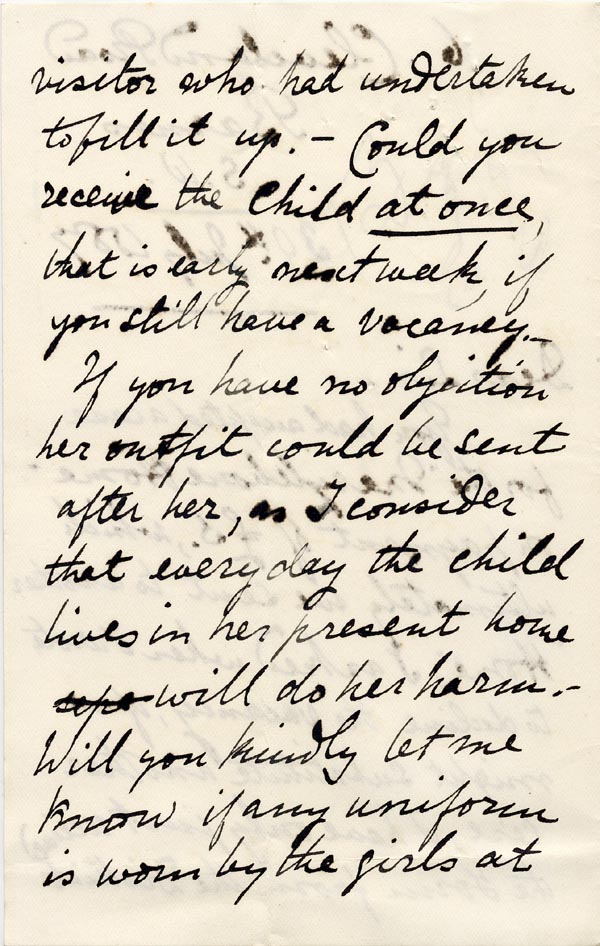 visitor who had undertaken
to fill it up. – Could you
receive the child at once,
that is early next week, if
you still have a vacancy. –
If you have no objection
her outfit could be sent
after her, as I consider
that every day the child
lives in her present home
will do her harm. –
Will you kindly let me
know if any uniform
is worn by the girls at